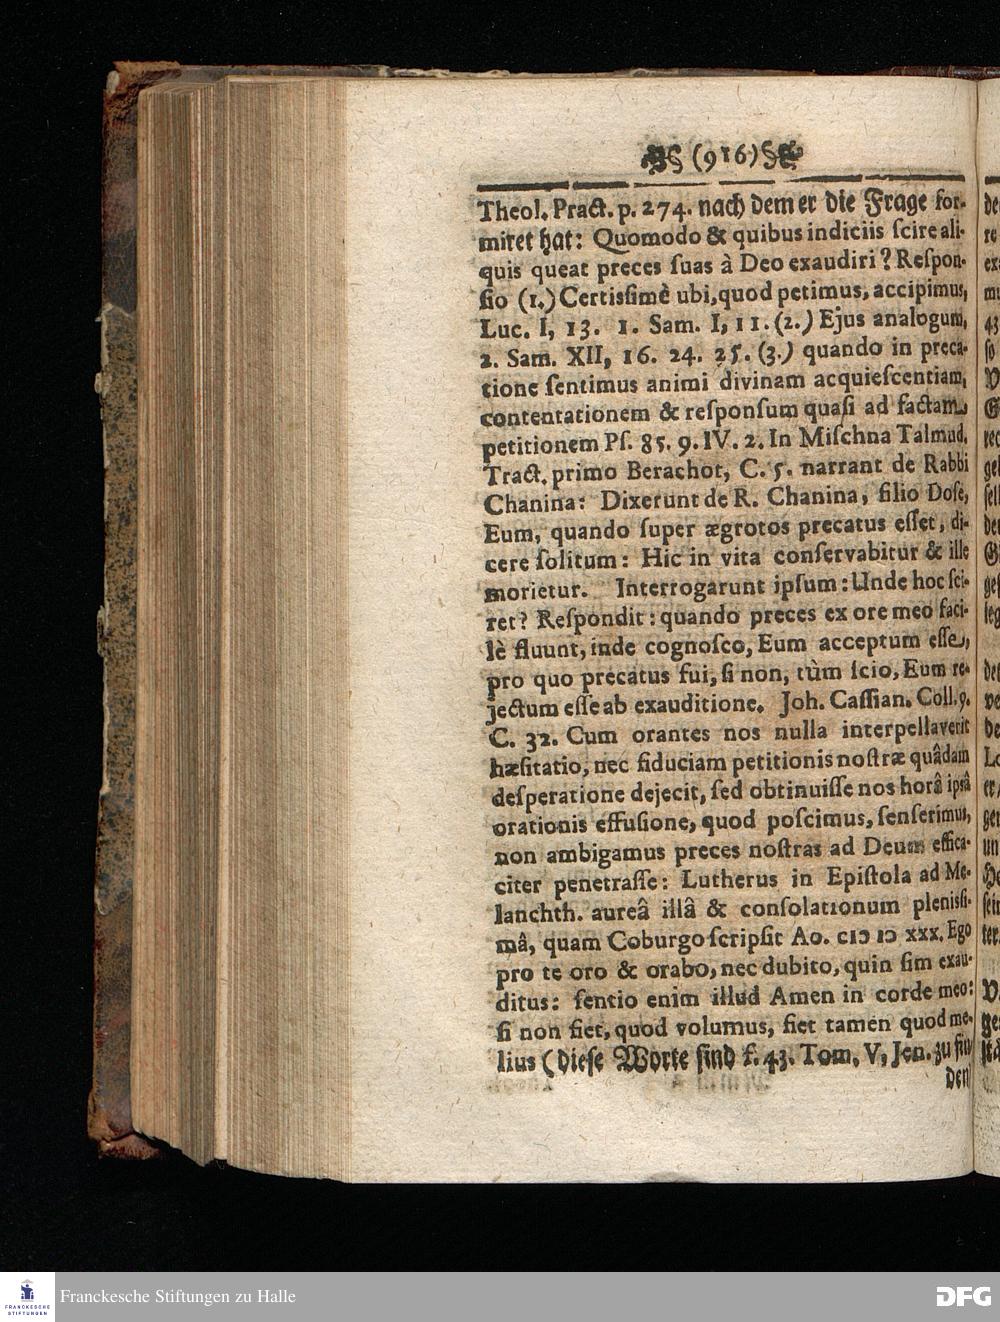 (916)
Theol. Pract. p. 274. nach dem er die Frage for-
miret hat: Quomodo & quibus indiciis ſcire ali-
quis queat preces ſuas à Deo exaudiri? Reſpon-
ſio (1.) Certisſimè ubi, quod petimus, accipimus,
Luc. I, 13. 1. Sam. I, 11. (2.) Ejus analogum,
2. Sam. XII, 16. 24. 25. (3.) quando in preca-
tione ſentimus animi divinam acquieſcentiam,
contentationem & reſponſum quaſi ad factam
petitionem Pſ. 85. 9. IV. 2. In Miſchna Talmud.
Tract. primo Berachot, C. 5. narrant de Rabbi
Chanina: Dixerunt de R. Chanina, filio Doſe,
Eum, quando ſuper ægrotos precatus eſſet, di-
cere ſolitum: Hic in vita conſervabitur & ille
morietur. Interrogarunt ipſum: Unde hoc ſci-
ret? Reſpondit: quando preces ex ore meo faci-
lè fluunt, inde cognoſco, Eum acceptum eſſe,
pro quo precatus fui, ſi non, tùm ſcio, Eum re-
jectum eſſe ab exauditione. Joh. Caſſian. Coll. 9.
C. 32. Cum orantes nos nulla interpellaverit
hæſitatio, nec fiduciam petitionis noſtræ quâdam
deſperatione dejecit, ſed obtinuiſſe nos horâ ipsâ
orationis effuſione, quod poſcimus, ſenſerimus,
non ambigamus preces noſtras ad Deum effica-
citer penetraſſe: Lutherus in Epiſtola ad Me-
lanchth. aureâ illâ & conſolationum plenisſi-
mâ, quam Coburgo ſcripſit Ao. cIↄ Iↄ xxx. Ego
pro te oro & orabo, nec dubito, quin ſim exau-
ditus: ſentio enim illud Amen in corde meo:
ſi non fiet, quod volumus, fiet tamen quod me-
lius (dieſe Worte ſind f. 43. Tom. V, Jen. zu fin
den
Franckesche Stiftungen zu Halle
FRANCKESCHE
STIFTUNGEN
DFG